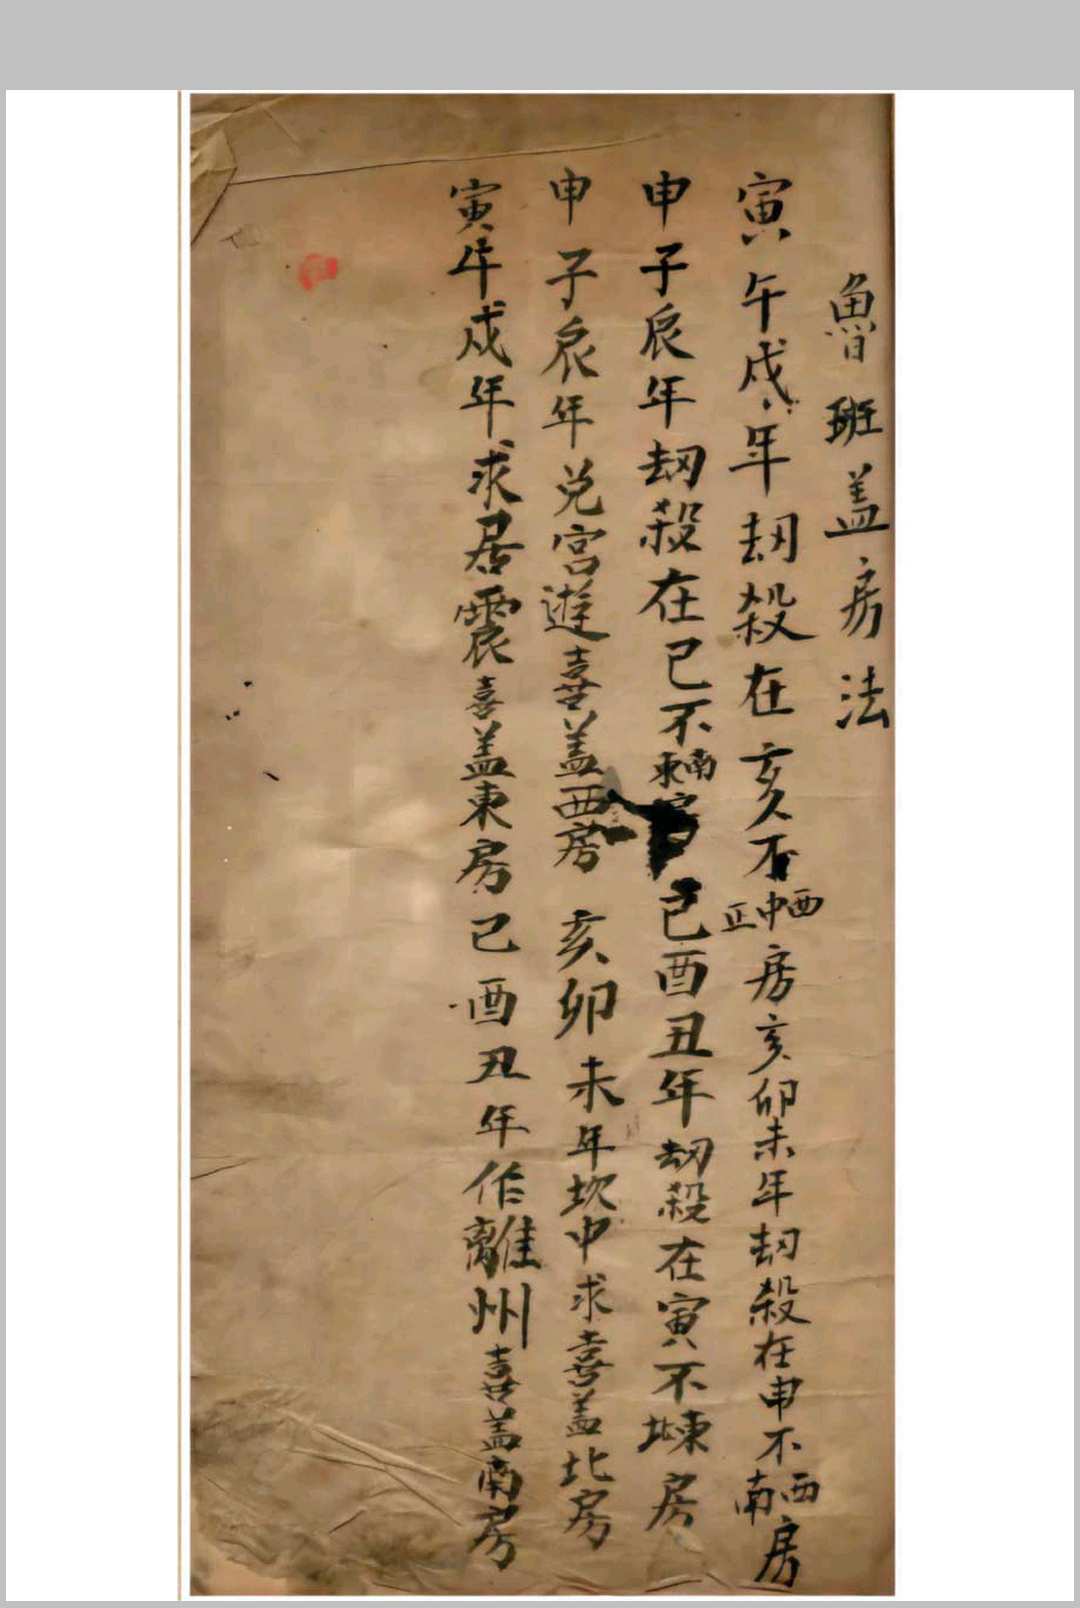 魯班盖房法
寅午戌年劫殺在亥不中西正房亥卯未年劫殺在申不西南房
申子辰年劫殺在巳不東南房巳酉丑年劫殺在寅不東北房
申子辰年兑宫遊喜盖西房亥卯未年坎中求喜盖北房
寅午戌年求居震喜盖東房巳酉丑年作離州喜盖南房